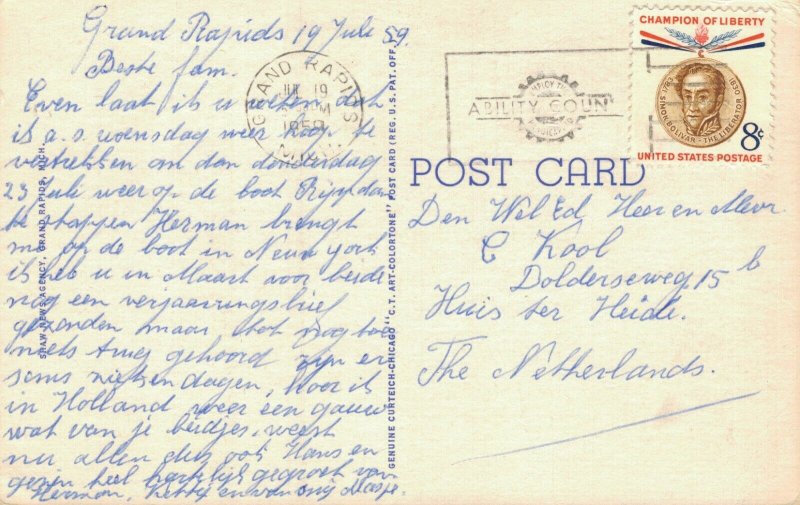 Grand Rapids 19 Juli 59.
Beste fam.
Even laat ik u weten dat
ik a.s. woensdag weer hoop te
vertrekken om dan donderdag
23 juli weer op de boot Rijndam
te stappen Herman brengt
me op de boot in New york
ik heb u in Maart voor beide
nog een verjaaringsbrief
gezonden maar tot nog toe
niets terug gehoord zijn er
soms hoor ik
in Holland weer een gauw
wat van je beidjes, weest
nu allen dus ook Hans en
gezin heel hartelijk gegroet van
Herman, Hetty en van mij
GRAND RAPIDS
JUL 19
PM
1959
MICH.
ABILITY COUN
CHAMPION OF LIBERTY
1783
1830
SIMON BOLIVAR - THE LIBERATOR
8c
UNITED STATES POSTAGE
POST CARD
Den Wel Ed Heer en Mevr.
C Kool
Dolderseweg 15 b
Huis ter Heide.
The Netherlands.
NEWS AGENCY, GRAND RAPIDS, MICH.
GENUINE CURTEICH-CHICAGO "C.T. ART-COLORTONE" POST CARD (REG. U.S. PAT. OFF.)